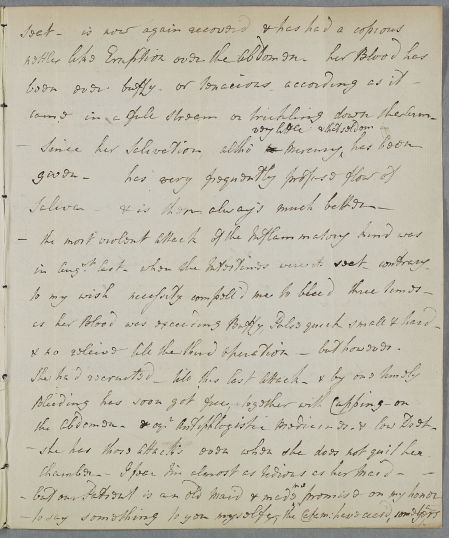 seet - is now again recoverd & has had a copious
nettles like Eruption over the Abdomen. her Blood has
been ever buffy. or tenacious according as it -
came in a full stream or trickling down the arm -
very little & but seldom
- Since her Salivation altho' Mercury, has been
given - has very frequently profuse flow of
Saliva & is then always much better -
- the most violent attack of the Inflammatory kind was
in Augst last - when the Intestines were seet - contrary
to my wish necessity compell'd me to bleed three times -
as her Blood was exceeding Buffy Pulse quick small & hard -
& no releive till the third operation - but however
She had recruited - till this last attack - & by one timely
Bleeding has soon got free together with Cupping on
the Abdomen - & Antiphlogistic Medicines & low Diet -
- She has those attacks even when she does not quit her
Chamber - I fear I'm almost as tedious as her Maid -
- but our Patient is an old Maid & made me promise on my honor
- to say something to you myself, the